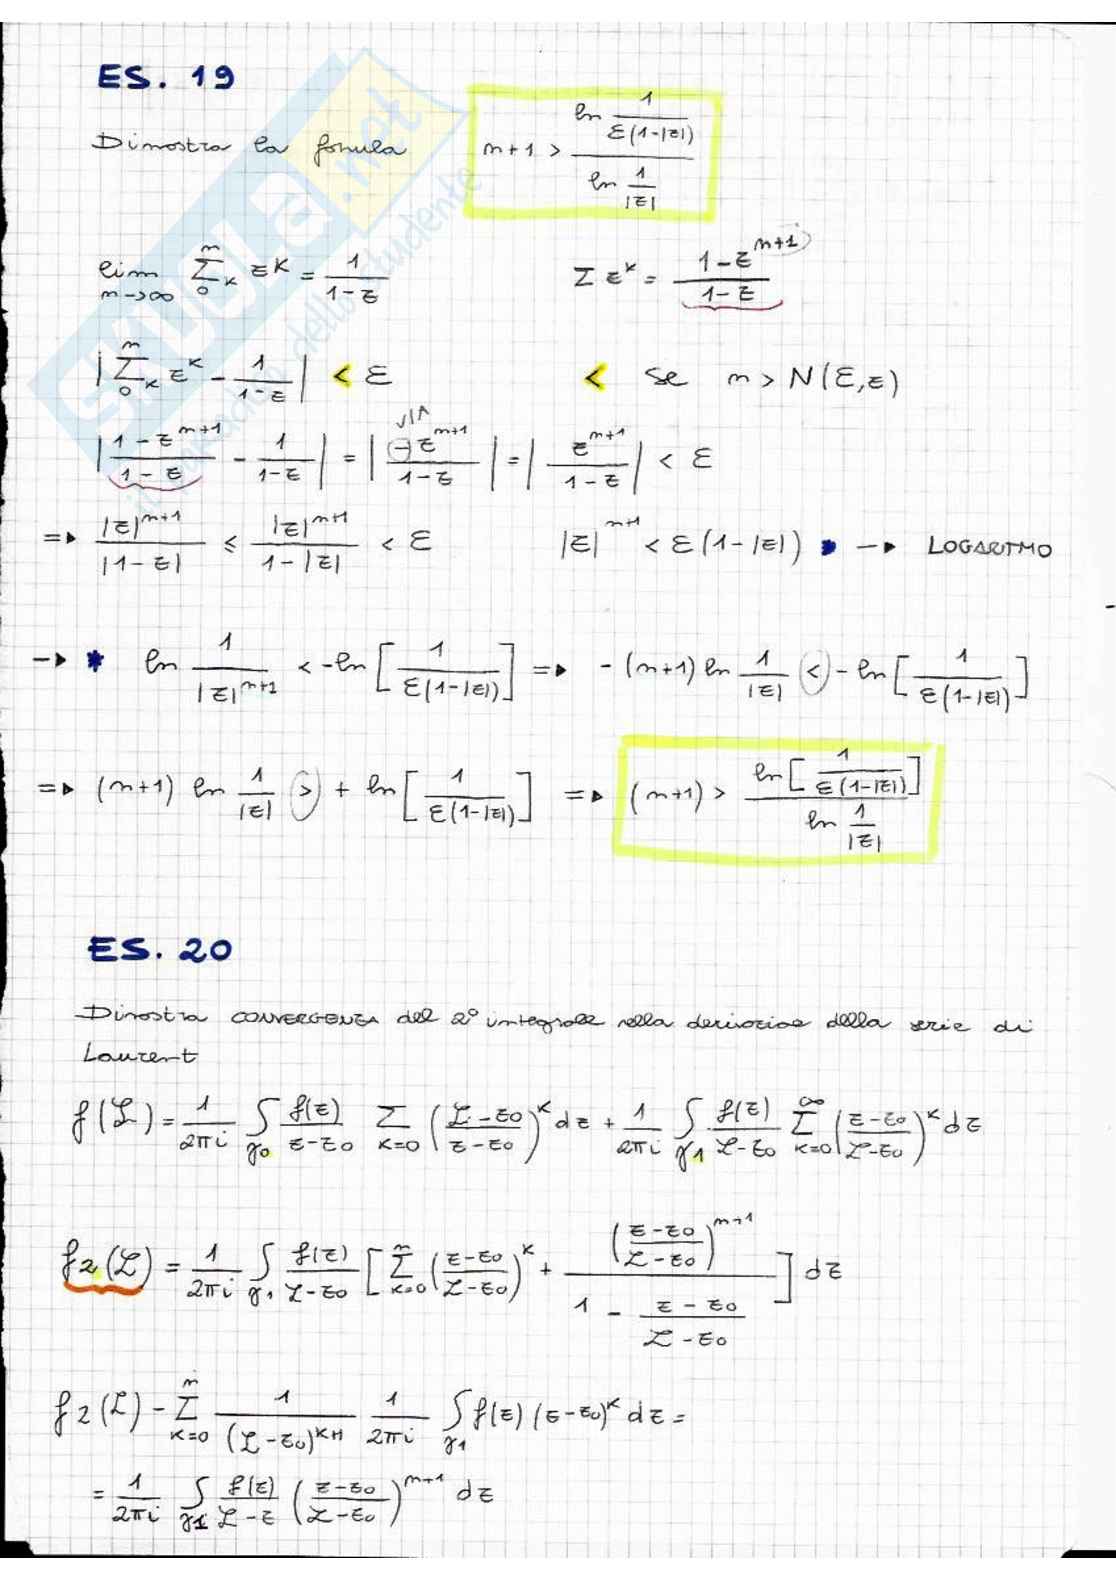 ES. 19
Dimostra la formula n+1 > ln 1/(ε(1-|z|)) / ln 1/|z|
lim n->∞ Σ_{0 k}^{n} z^k = 1/(1-z)    Σ z^k = (1-z^{n+1})/(1-z)
|Σ_{0 k}^{n} z^k - 1/(1-z)| < ε    < se n > N(ε,z)
|(1-z^{n+1})/(1-z) - 1/(1-z)| = |-z^{n+1}/(1-z)| = |z^{n+1}/(1-z)| < ε
=> |z|^{n+1}/|1-z| ≤ |z|^{n+1}/(1-|z|) < ε    |z|^{n+1} < ε(1-|z|) * -> LOGARITMO
-> * ln 1/|z|^{n+1} < -ln[1/(ε(1-|z|))] => -(n+1) ln 1/|z| < -ln[1/(ε(1-|z|))]
=> (n+1) ln 1/|z| > + ln[1/(ε(1-|z|))] => (n+1) > ln[1/(ε(1-|z|))] / ln 1/|z|
ES. 20
Dimostra CONVERGENZA del 2° integrale nella derivazione della serie di
Laurent
f(ζ) = 1/(2πi) ∫_{γ0} f(z)/(z-z0) Σ_{k=0} ((ζ-z0)/(z-z0))^k dz + 1/(2πi) ∫_{γ1} f(z)/(ζ-z0) Σ_{k=0}^{∞} ((z-z0)/(ζ-z0))^k dz
f2(ζ) = 1/(2πi) ∫_{γ1} f(z)/(ζ-z0) [Σ_{k=0}^{n} ((z-z0)/(ζ-z0))^k + ((z-z0)/(ζ-z0))^{n+1} / (1 - (z-z0)/(ζ-z0))] dz
f2(ζ) - Σ_{k=0}^{n} 1/(ζ-z0)^{k+1} 1/(2πi) ∫_{γ1} f(z)(z-z0)^k dz =
= 1/(2πi) ∫_{γ1} f(z)/(ζ-z) ((z-z0)/(ζ-z0))^{n+1} dz
SKUOLA.net